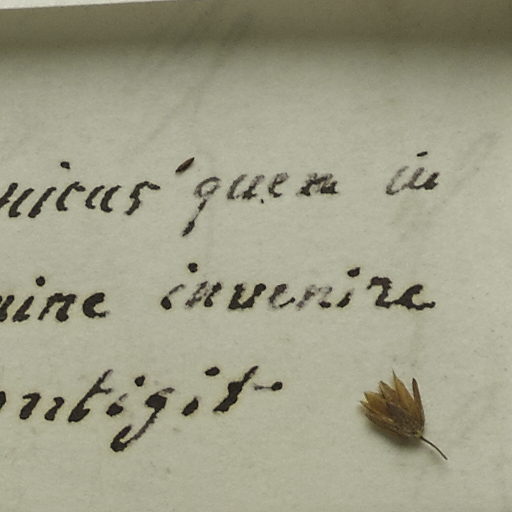 nicus quem in
uine invenire
ntigit